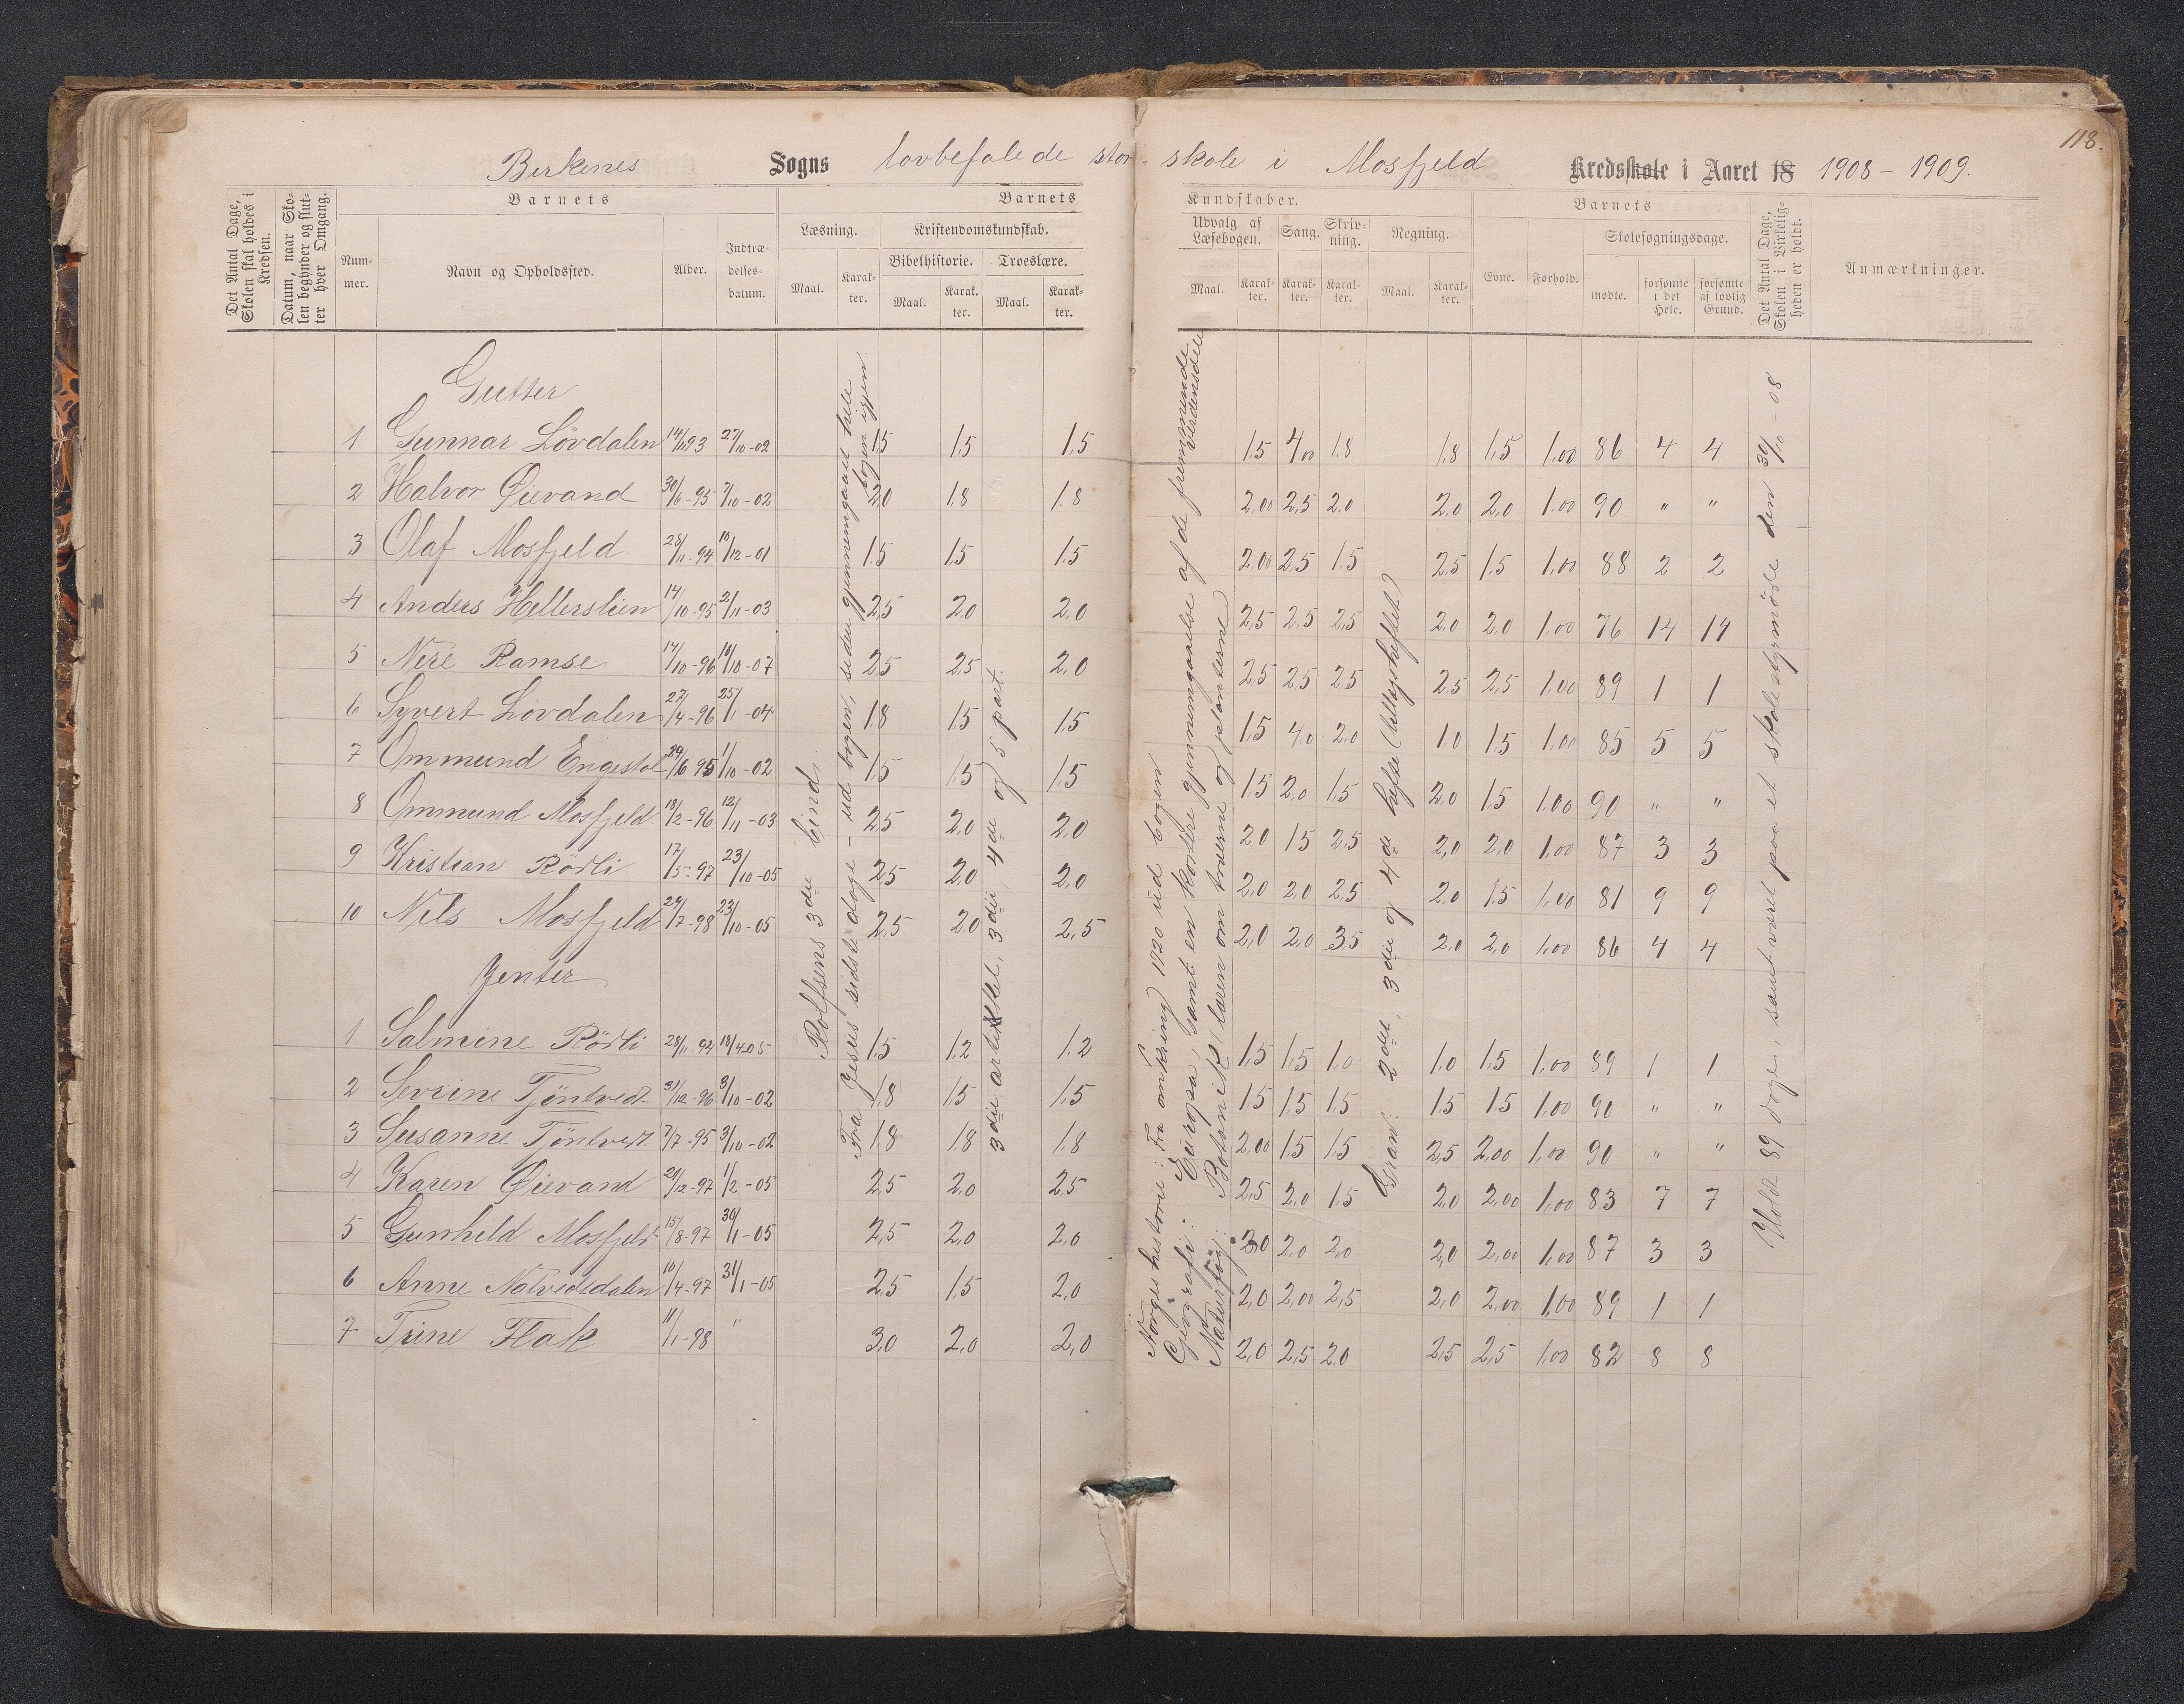 118.
Birkenes Sogns lovbefalede stor-skole i Mosfjeld Kredsskole i Aaret 18 1908 - 1909.
Det Antal Dage, Skolen skal holdes i Kredsen.
Datum, naar Skolen begynder og slutter hver Omgang.
Barnets
Nummer.
Navn og Opholdssted.
Alder.
Indtrædelsesdatum.
Barnets Kundskaber.
Læsning.
Maal. Karakter.
Kristendomskundskab.
Bibelhistorie. Troeslære.
Maal. Karakter. Maal. Karakter.
Udvalg af Læsebogen. Sang. Skrivning. Regning.
Maal. Karakter. Karakter. Karakter. Maal. Karakter.
Barnets
Evne. Forhold. Skolesøgningsdage.
mødte. forsømte i det Hele. forsømte af lovlig Grund.
Det Antal Dage, Skolen i Virkeligheden er holdt.
Anmærkninger.
Gutter
1 Gunnar Lövdalen 14/11 93 27/10-02 1,5 1,5 1,5 1,5 4,00 1,8 1,8 1,5 1,00 86 4 4
2 Halvor Øievand 30/6-95 7/10-02 2,0 1,8 1,8 2,00 2,5 2,0 2,0 2,0 1,00 90 " "
3 Olaf Mosfjeld 28/11-94 16/12-01 1,5 1,5 1,5 2,00 2,5 1,5 2,5 1,5 1,00 88 2 2
4 Anders Hellerslien 14/10-95 2/11-03 2,5 2,0 2,0 2,5 2,5 2,5 2,0 2,0 1,00 76 14 14
5 Nere Ramse 14/10-96 14/10-07 2,5 2,5 2,0 2,5 2,5 2,5 2,5 2,5 1,00 89 1 1
6 Syvert Lövdalen 27/4-96 25/1-04 1,8 1,5 1,5 1,5 4,0 2,0 1,0 1,5 1,00 85 5 5
7 Ommund Engestøl 29/6 95 1/10-02 1,5 1,5 1,5 1,5 2,0 1,5 2,0 1,5 1,00 90 " "
8 Ommund Mosfjeld 18/2-96 12/11-03 2,5 2,0 2,0 2,0 1,5 2,5 2,0 2,0 1,00 87 3 3
9 Kristian Rödli 17/5-97 23/10-05 2,5 2,0 2,0 2,0 2,0 2,5 2,0 1,5 1,00 81 9 9
10 Nils Mosfjeld 29/7-98 23/10-05 2,5 2,0 2,5 2,0 2,0 3,5 2,0 2,0 1,00 86 4 4
Jenter
1 Salmine Rödli 28/11-94 18/4 05 1,5 1,2 1,2 1,5 1,5 1,0 1,0 1,5 1,00 89 1 1
2 Sevrine Tjöntvedt 31/12-96 3/10-02 1,8 1,5 1,5 1,5 1,5 1,5 1,5 1,5 1,00 90 " "
3 Susanne Tjöntvedt 7/7-95 3/10-02 1,8 1,8 1,8 2,00 1,5 1,5 2,5 2,00 1,00 90 " "
4 Karen Øievand 29/12-97 1/2-05 2,5 2,0 2,5 2,5 2,0 1,5 2,0 2,00 1,00 83 7 7
5 Gunhild Mosfjeld 15/8-97 30/1-05 2,5 2,0 2,0 2,0 2,0 2,0 2,0 2,00 1,00 87 3 3
6 Anne Natvedsdalen 10/4-97 31/1-05 2,5 1,5 2,0 2,0 2,00 2,5 2,0 2,00 1,00 89 1 1
7 Trine Flak 11/1-98 " 3,0 2,0 2,0 2,0 2,5 2,0 2,5 2,5 1,00 82 8 8
Rolfsens 3die bind.
Fra Jesus sidste dage - ud bogen, siden gjennemgaaet hele bogen igjen.
3die artikkel, 3die, 4de og 5 part.
Norgeshistorie: Fra omkring 1720 ud bogen
Geografi: Europa, samt en kortere gjennemgaaelse af de fremmende verdensdele
Naturfag: Botanik (læren om træerne og planterne)
Gran: 2det, 3die og 4de hefte (Utdragsheftet)
Holdt 89 dage, samt været paa et skolestyrmøde den 30/10-08